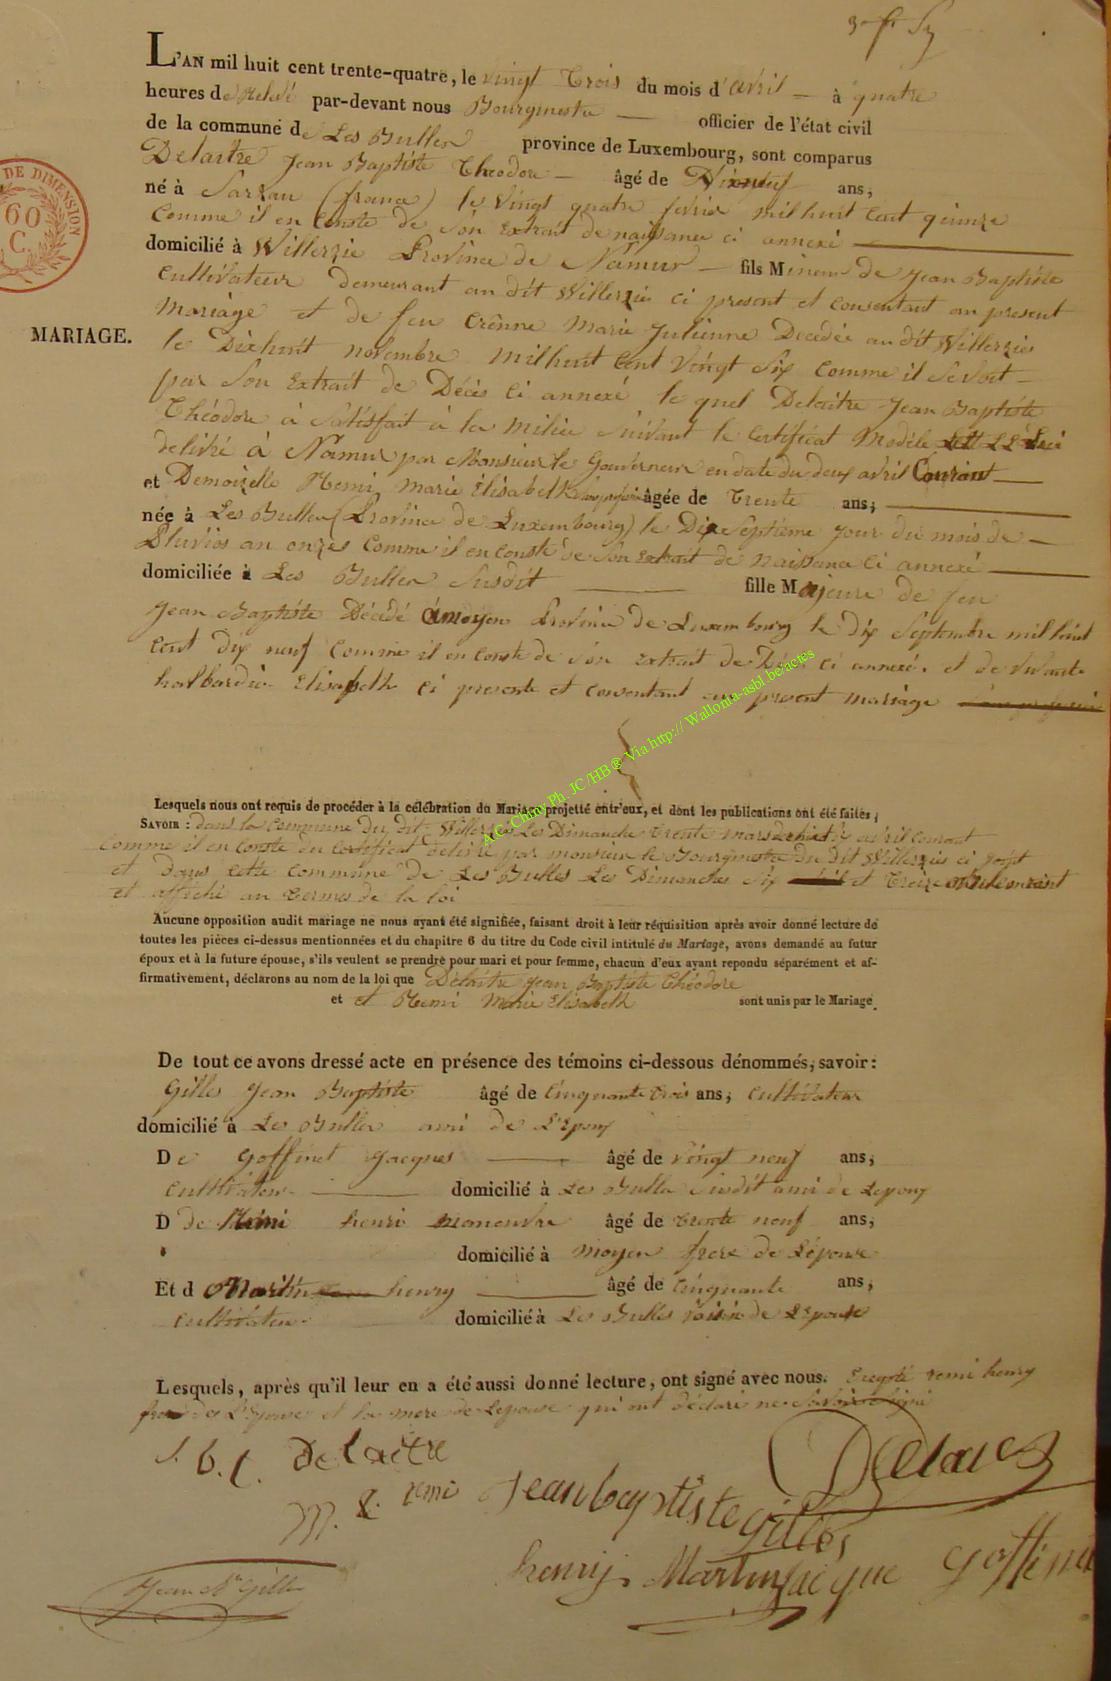 L'AN mil huit cent trente-quatre, le vingt trois du mois d'avril à quatre
heures de relevé par-devant nous Bourgmestre officier de l'état civil
de la commune de Les Bulles province de Luxembourg, sont comparus
Delaitre Jean Baptiste Théodore âgé de Dixneuf ans,
né à Sarzau (france) le vingt quatre fevrier mil huit cent quinze
comme il en conste de son extrait de naissance ci annexé
domicilié à Willerzie Province de Namur fils Mineur de Jean Baptiste
cultivateur demeurant au dit Willerzies ci present et consentant au present
MARIAGE.
mariage et de feu Crênne Marie Julienne Decedée au dit Willerzies
le Dixhuit novembre mil huit cent vingt six comme il se voit
par son extrait de Décès ci annexé le quel Delaitre Jean Baptiste
Théodore à satisfait à la milice suivant le certificat Modèle
delivré à Namur par Monsieur le Gouverneur en date du deux avril Courant
et Demoiselle Remi Marie Elisabeth sans profession âgée de trente ans,
née à Les Bulles (Province de Luxembourg) le Dix Septieme jour du mois de
Pluvios an onzes comme il en conste de son extrait de naissance ci annexé
domiciliée à Les Bulles susdit fille Majeure de feu
Jean Baptiste Décédé à moyen Province de Luxembourg le dix Septembre mil huit
cent dix neuf comme il en conste de son extrait de Décès ci annexé. et de vivante
halbardie Elisabeth ci presente et consentant au present mariage
A.C. Chiny Ph. JC /HB ® Via http:// Wallonia-asbl.be/actes
Lesquels nous ont requis de procéder à la célébration du Mariage projetté entr'eux, et dont les publications ont été faites,
SAVOIR : dans la Commune du dit Willerzies Les Dimanche trente mars et six avril courant
comme il en conste du certificat délivré par monsieur le Bourgmestre du dit Willerzies ci joint
et dans cette commune de Les Bulles Les Dimanches six et treize avril courant
et affiché au termes de la loi
Aucune opposition audit mariage ne nous ayant été signifiée, faisant droit à leur réquisition après avoir donné lecture de
toutes les pièces ci-dessus mentionnées et du chapitre 6 du titre du Code civil intitulé du Mariage, avons demandé au futur
époux et à la future épouse, s'ils veulent se prendre pour mari et pour femme, chacun d'eux ayant repondu séparément et af-
firmativement, déclarons au nom de la loi que Delaitre Jean Baptiste Théodore
et et Remi Marie Elisabeth sont unis par le Mariage.
De tout ce avons dressé acte en présence des témoins ci-dessous dénommés, savoir :
Gilles Jean Baptiste âgé de Cinquante trois ans, cultivateur
domicilié à Les Bulles ami de L'Epoux
De Goffinet Jacques âgé de vingt neuf ans,
cultivateur domicilié à Les Bulles susdit ami de Lepoux
D de Remi henri manoeuvre âgé de trente neuf ans,
domicilié à moyen frere de L'épouse
Et d Martin henry âgé de Cinquante ans,
cultivateur domicilié à Les Bulles voisin de L'Epouse
Lesquels, après qu'il leur en a été aussi donné lecture, ont signé avec nous. Excepté remi henry
frere de L'Epouse et la mere de Lepouse qui ont déclaré ne Savoir Signé
J. b. t. Delaitre
M. E. remi Jean baptiste gilles
henry Martin jacque goffinet
Jean Bte Gilles
DE DIMENSION
60
C.